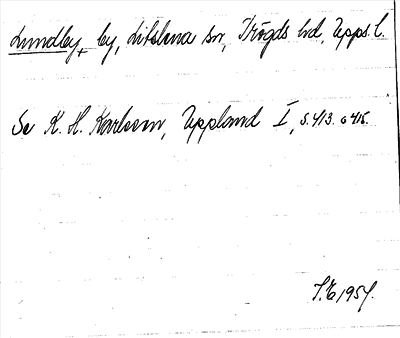 Lundby, by, Litslena sn, Trögds hd, Upps. l.
Se K. H. Karlsson, Uppland I, s. 413. o 415.
1954.